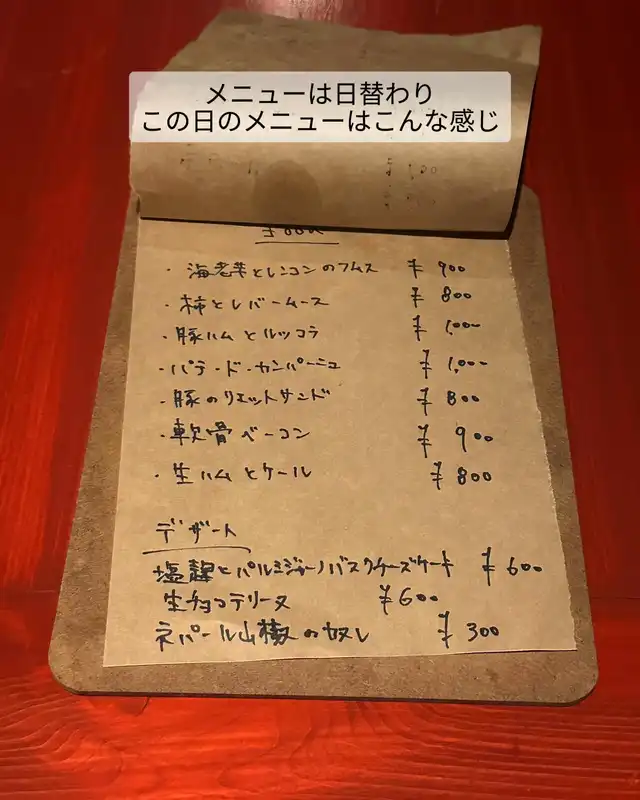 メニューは日替わり
この日のメニューはこんな感じ
・海老芋とレンコンのフムス ¥900
・柿とレバームース ¥800
・豚ハムとルッコラ ¥1,000
・パテ・ド・カンパーニュ ¥1,000
・豚のリエットサンド ¥800
・軟骨ベーコン ¥900
・生ハムとケール ¥800
デザート
塩麹とパルミジャーノバスクチーズケーキ ¥600
生チョコテリーヌ ¥600
ネパール山椒の ¥300